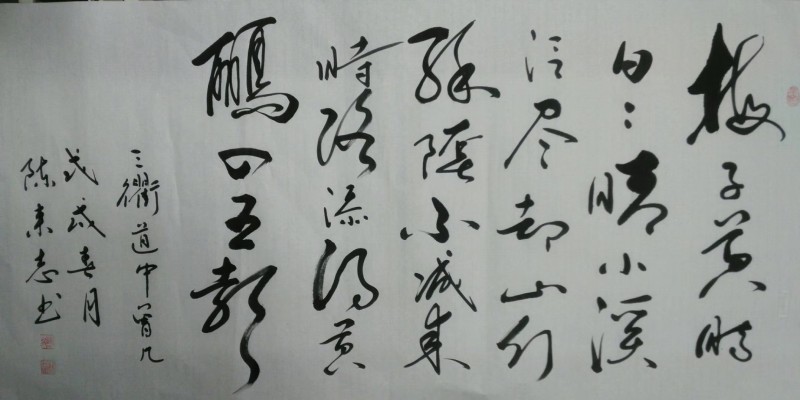 梅子黄時
日日晴小溪
泛尽却山行
緑陰不减来
時路添得黄
鹂四五聲
三衢道中曾几
戊戌春月
陈志书